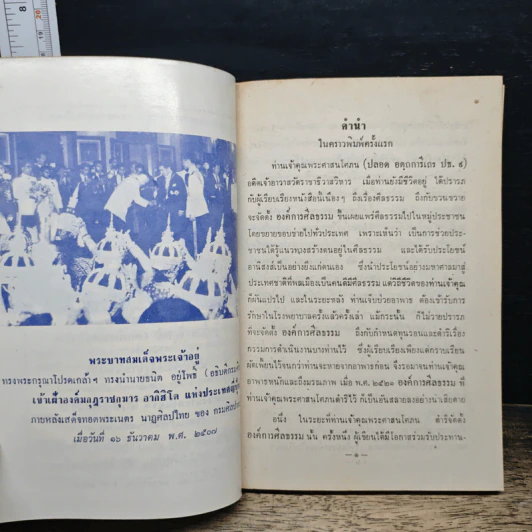 พระบาทสมเด็จพระเจ้าอยู่
ทรงพระกรุณาโปรดเกล้าฯ ทรงนำนายธนิต อยู่โพธิ์ (อธิบดีกรม
เจ้าฟ้าองค์มกุฎราชกุมาร อากิฮิโต แห่งประเทศญี่ปุ่น
ภายหลังเสด็จทอดพระเนตร นาฏศิลป์ไทย ของ กรมศิลปา
เมื่อวันที่ ๑๖ ธันวาคม พ.ศ. ๒๕๐๗
คำนำ
ในคราวพิมพ์ครั้งแรก
ท่านเจ้าคุณพระศาสนโศภน (ปลอด อตฺถการีเถร ปธ. ๙)
อดีตเจ้าอาวาสวัดราชาธิวาสวิหาร เมื่อท่านยังมีชีวิตอยู่ ได้ปรารภ
กับผู้เรียบเรียงหนังสือนี้เนืองๆ ถึงเรื่องศีลธรรม ถึงกับขวนขวาย
จะจัดตั้ง องค์การศีลธรรม ขึ้นเผยแพร่ศีลธรรมไปในหมู่ประชาชน
โดยขยายขอบข่ายไปทั่วประเทศ เพราะเห็นว่า เป็นการช่วยประ-
ชาชนได้รู้แนวทางสร้างตนอยู่ในศีลธรรม และได้รับประโยชน์
อานิสงส์เป็นอย่างยิ่งแก่ตนเอง ซึ่งนำประโยชน์อย่างมหาศาลมาสู่
ประเทศชาติที่พลเมืองเป็นคนดีมีศีลธรรม แต่วิถีชีวิตของท่านเจ้าคุณ
ก็ผันแปรไป และในระยะหลัง ท่านเจ็บป่วยอาพาธ ต้องเข้ารับการ
รักษาในโรงพยาบาลครั้งแล้วครั้งเล่า แม้กระนั้น ก็ไม่วายปรารภ
ที่จะจัดตั้ง องค์การศีลธรรม ถึงกับกำหนดทุนรอนและดำริเรื่อง
กรรมการดำเนินงานบางท่านไว้ ซึ่งผู้เรียบเรียงเพียงแต่กราบเรียน
ผัดเพี้ยนไว้จนกว่าท่านจะหายจากอาพาธก่อน จึงรอมาจนท่านเจ้าคุณ
อาพาธหนักและถึงมรณภาพ เมื่อ พ.ศ. ๒๕๒๑ องค์การศีลธรรม ที่
ท่านเจ้าคุณพระศาสนโศภนดำริไว้ ก็เป็นอันสลายลงอย่างน่าเสียดาย
อนึ่ง ในระยะที่ท่านเจ้าคุณพระศาสนโศภน ดำริจัดตั้ง
องค์การศีลธรรม นั้น ครั้งหนึ่ง ผู้เขียนได้มีโอกาสร่วมรับประทาน-
— ๑ —